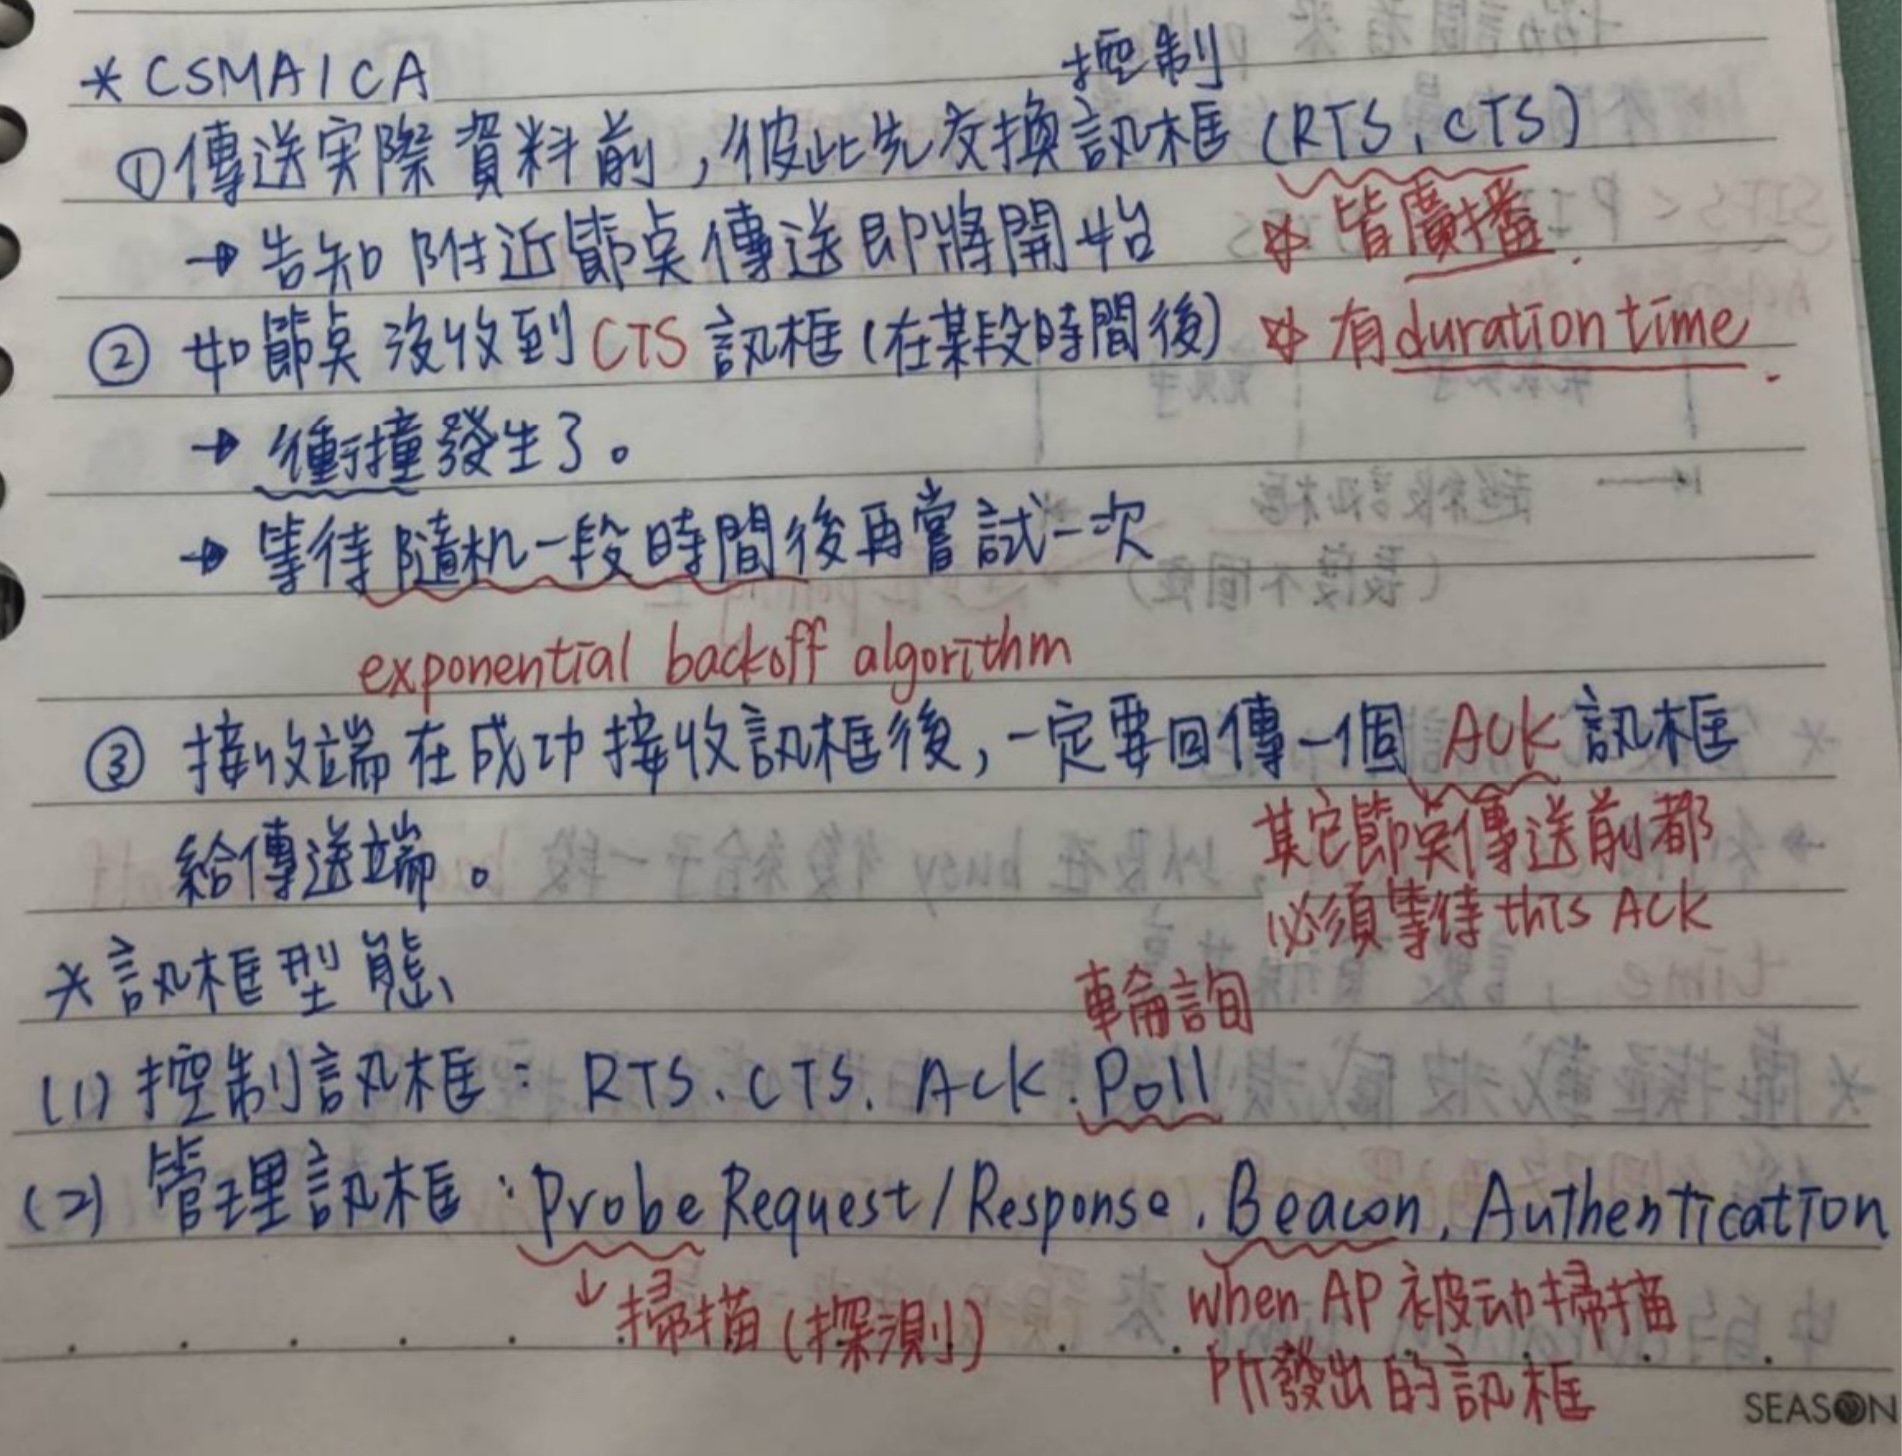 * CSMA/CA
控制
①傳送実際資料前,彼此先交換訊框(RTS、CTS)
→告知附近節点傳送即將開始 * 皆廣播.
② 如節点沒收到CTS訊框(在某段時間後) * 有duration time.
→ 衝撞發生了。
→ 等待隨机一段時間後再嘗試一次
exponential backoff algorithm
③ 接收端在成功接收訊框後,一定要回傳一個 Ack 訊框
給傳送端。
其它節点傳送前都
必須等待 this ACK
*訊框型態
輪詢
(1) 控制訊框: RTS、CTS、Ack、Poll
(2) 管理訊框:Probe Request/Response、Beacon、Authentication
↓掃描(探測)
when AP 被动掃描
所發出的訊框
SEASON